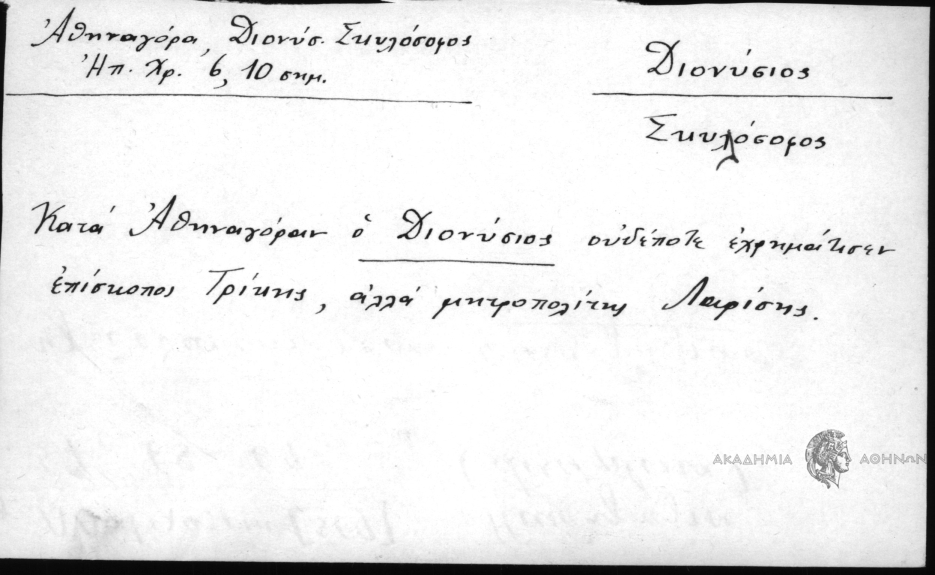 Ἀθηναγόρα, Διονύσ. Σκυλόσοφος
Ἠπ. Χρ. 6, 10 σημ.
Διονύσιος
Σκυλόσοφος
Κατά Ἀθηναγόραν ὁ Διονύσιος οὐδέποτε ἐχρημάτισεν
ἐπίσκοπος Τρίκης, ἀλλά μητροπολίτης Λαρίσης.
ΑΚΑΔΗΜΙΑ ΑΘΗΝΩΝ